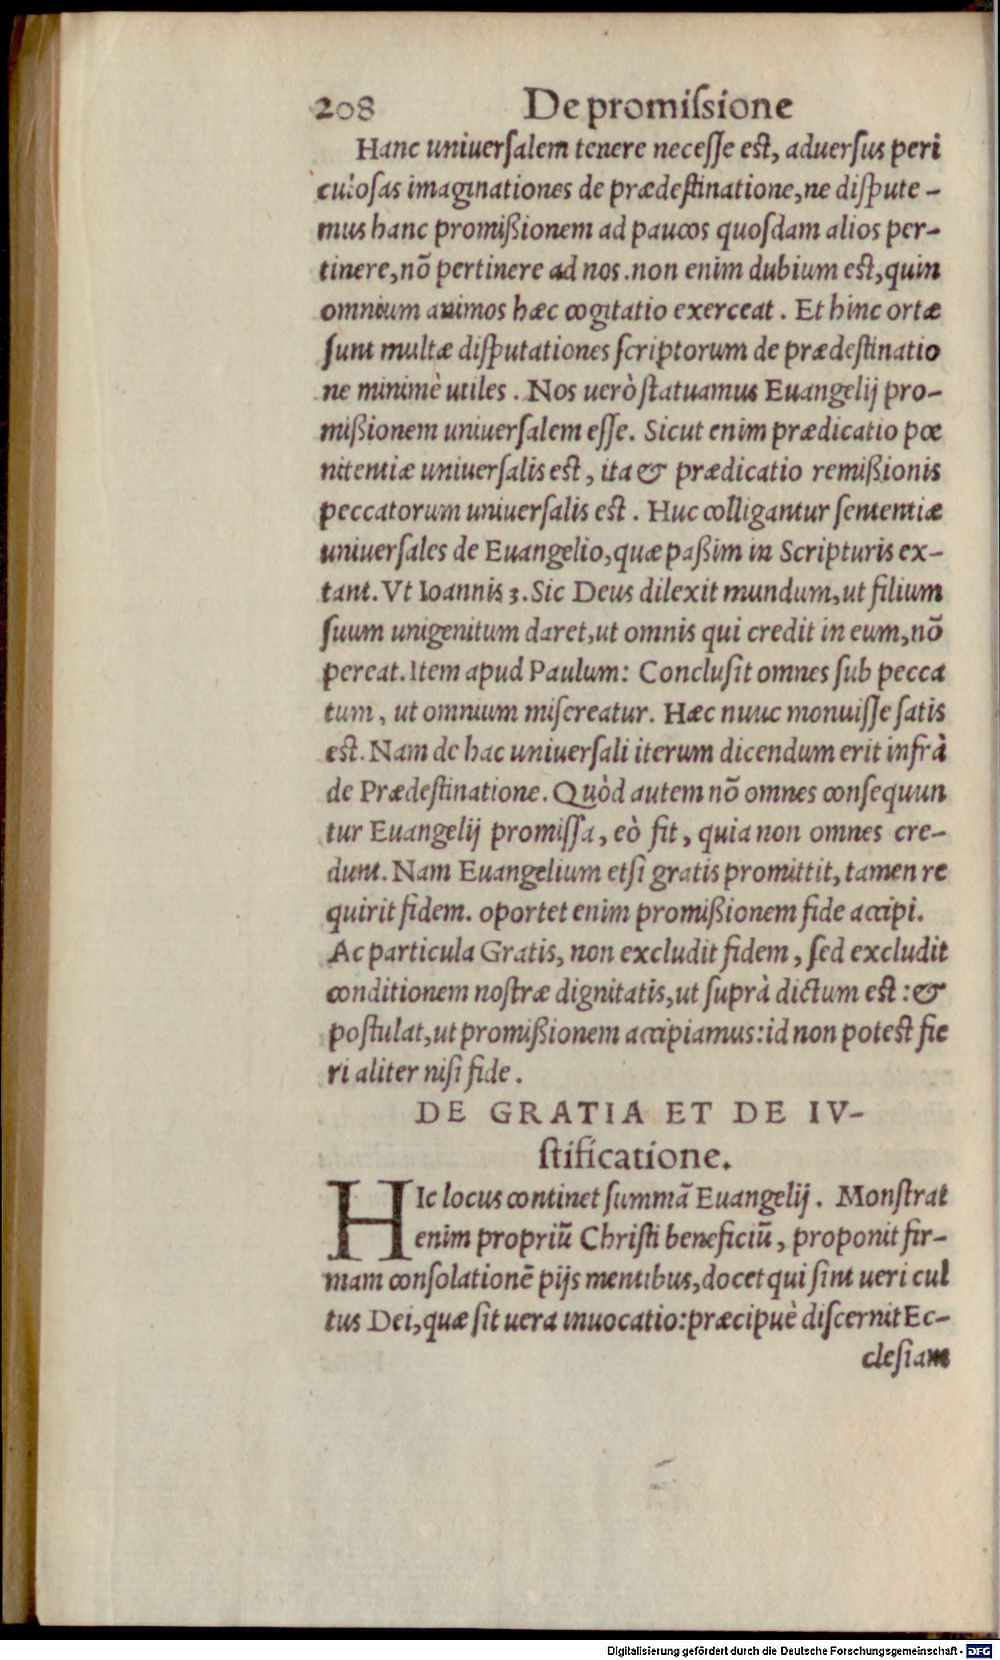 208 De promiſsione
Hanc uniuerſalem tenere neceſſe eſt, aduerſus peri
culoſas imaginationes de prædeſtinatione, ne diſpute-
mus hanc promißionem ad paucos quoſdam alios per-
tinere, nõ pertinere ad nos. non enim dubium eſt, quin
omnium animos hæc cogitatio exerceat. Et hinc ortæ
ſunt multæ diſputationes ſcriptorum de prædeſtinatio
ne minimè utiles. Nos uerò ſtatuamus Euangelij pro-
mißionem uniuerſalem eſſe. Sicut enim prædicatio pœ
nitentiæ uniuerſalis eſt, ita & prædicatio remißionis
peccatorum uniuerſalis eſt. Huc colligantur ſententiæ
uniuerſales de Euangelio, quæ paßim in Scripturis ex-
tant. Vt Ioannis 3. Sic Deus dilexit mundum, ut filium
ſuum unigenitum daret, ut omnis qui credit in eum, nõ
pereat. Item apud Paulum: Concluſit omnes ſub pecca
tum, ut omnium miſereatur. Hæc nunc monuiſſe ſatis
eſt. Nam de hac uniuerſali iterum dicendum erit infrà
de Prædeſtinatione. Quòd autem nõ omnes conſequun
tur Euangelij promiſſa, eò fit, quia non omnes cre-
dunt. Nam Euangelium etſi gratis promittit, tamen re
quirit fidem. oportet enim promißionem fide accipi.
Ac particula Gratis, non excludit fidem, ſed excludit
conditionem noſtræ dignitatis, ut ſuprà dictum eſt: &
poſtulat, ut promißionem accipiamus: id non poteſt fie
ri aliter niſi fide.
DE GRATIA ET DE IV-
ſtificatione.
HIc locus continet ſummã Euangelij. Monſtrat
enim propriũ Chriſti beneficiũ, proponit fir-
mam conſolationẽ pijs mentibus, docet qui ſint ueri cul
tus Dei, quæ ſit uera inuocatio: præcipuè diſcernit Ec-
cleſiam
Digitalisierung gefördert durch die Deutsche Forschungsgemeinschaft - DFG